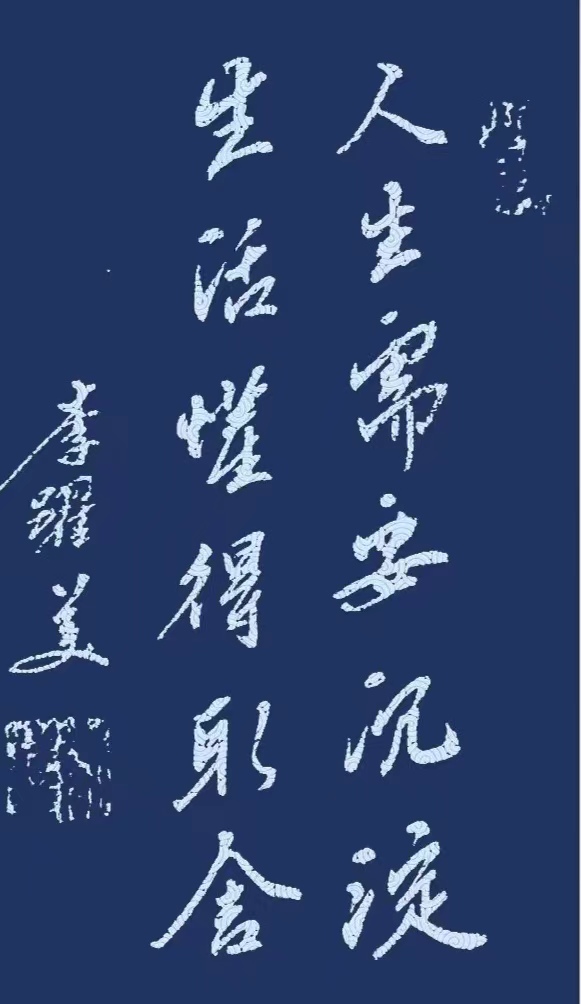 人生需要沉淀
生活懂得取舍
李躍美